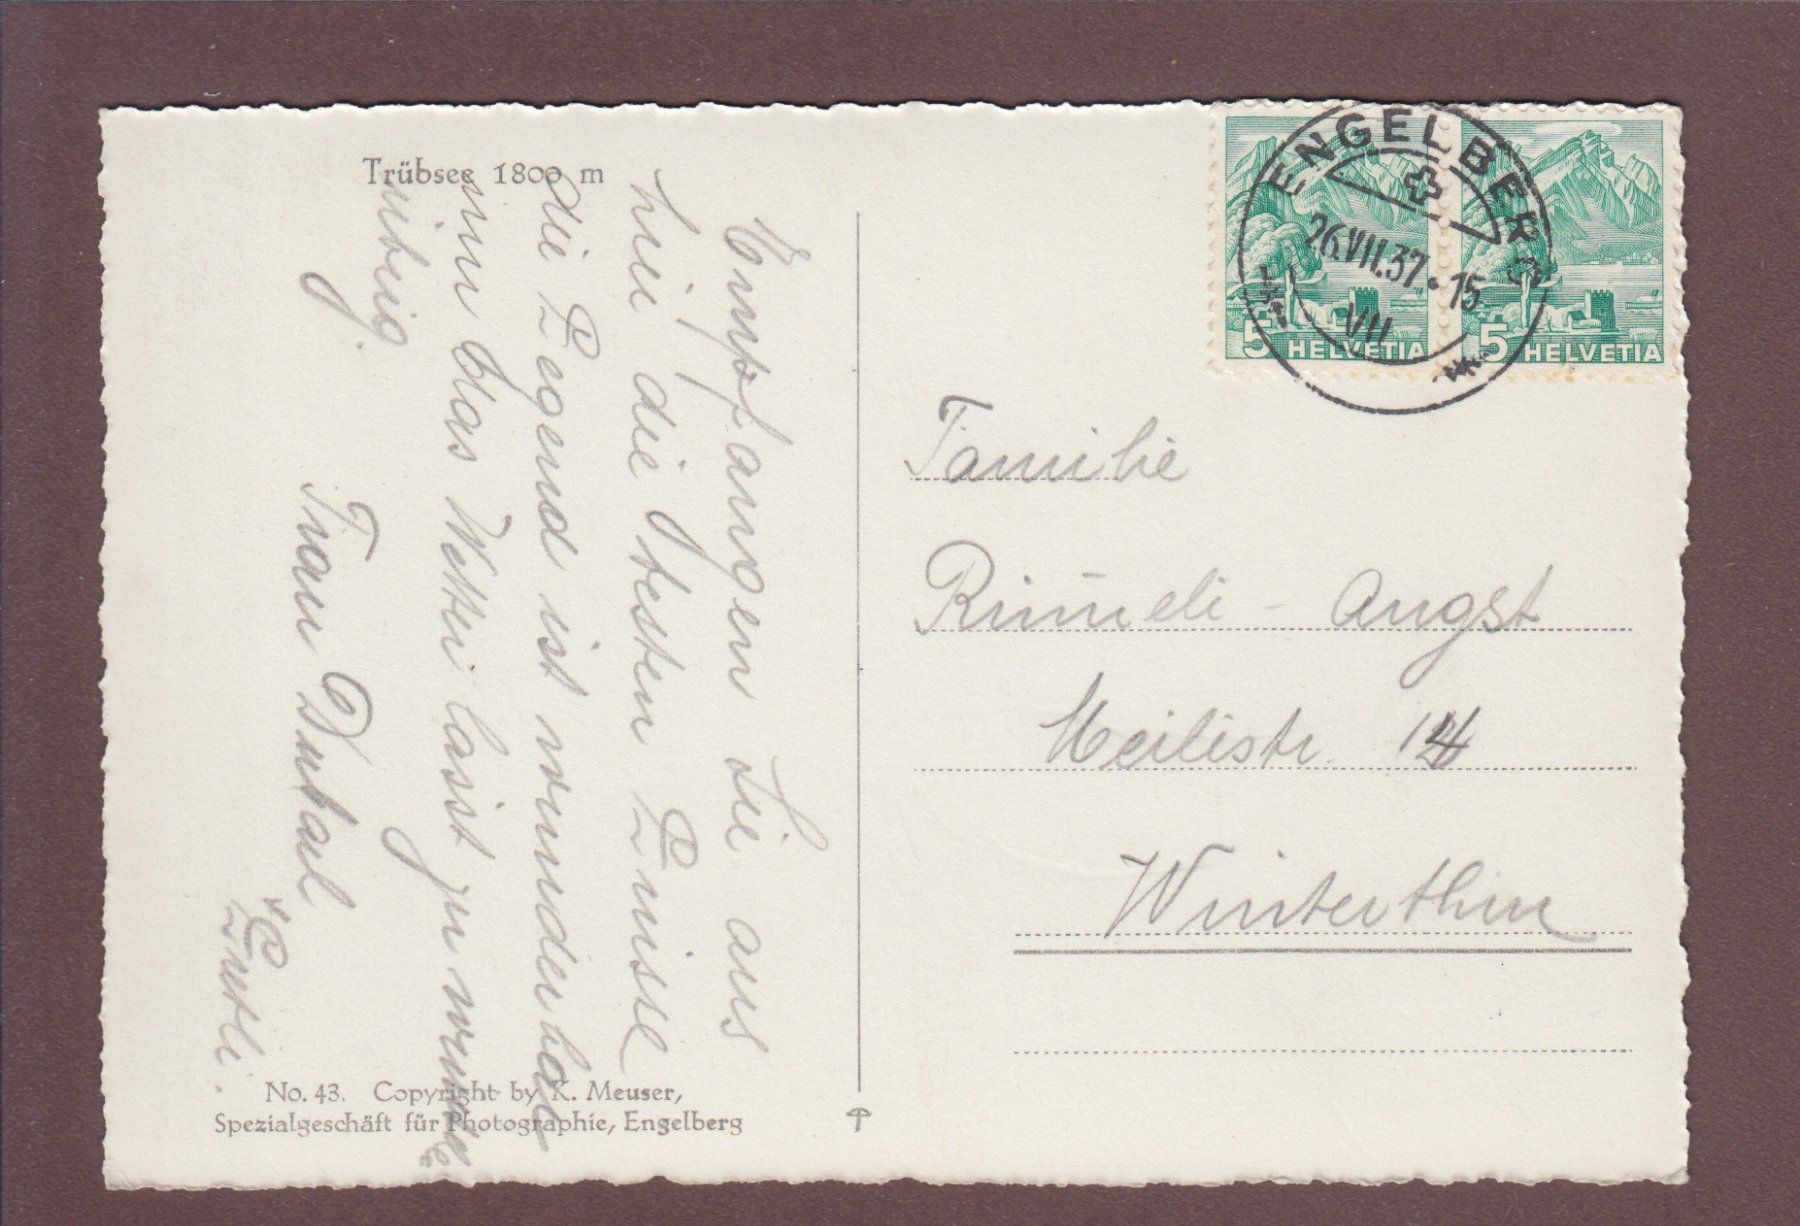 Trübsee 1800 m
Empfangen Sie aus
hier die besten Grüsse
die Gegend ist wunderbar
nur das Wetter lässt zu wünsche
übrig.
Frau
No. 43. Copyright by K. Meuser,
Spezialgeschäft für Photographie, Engelberg
ENGELBERG
26.VII.37.15
VII
5 HELVETIA
5 HELVETIA
Familie
Rümeli - Angst
Meilistr. 14
Winterthur